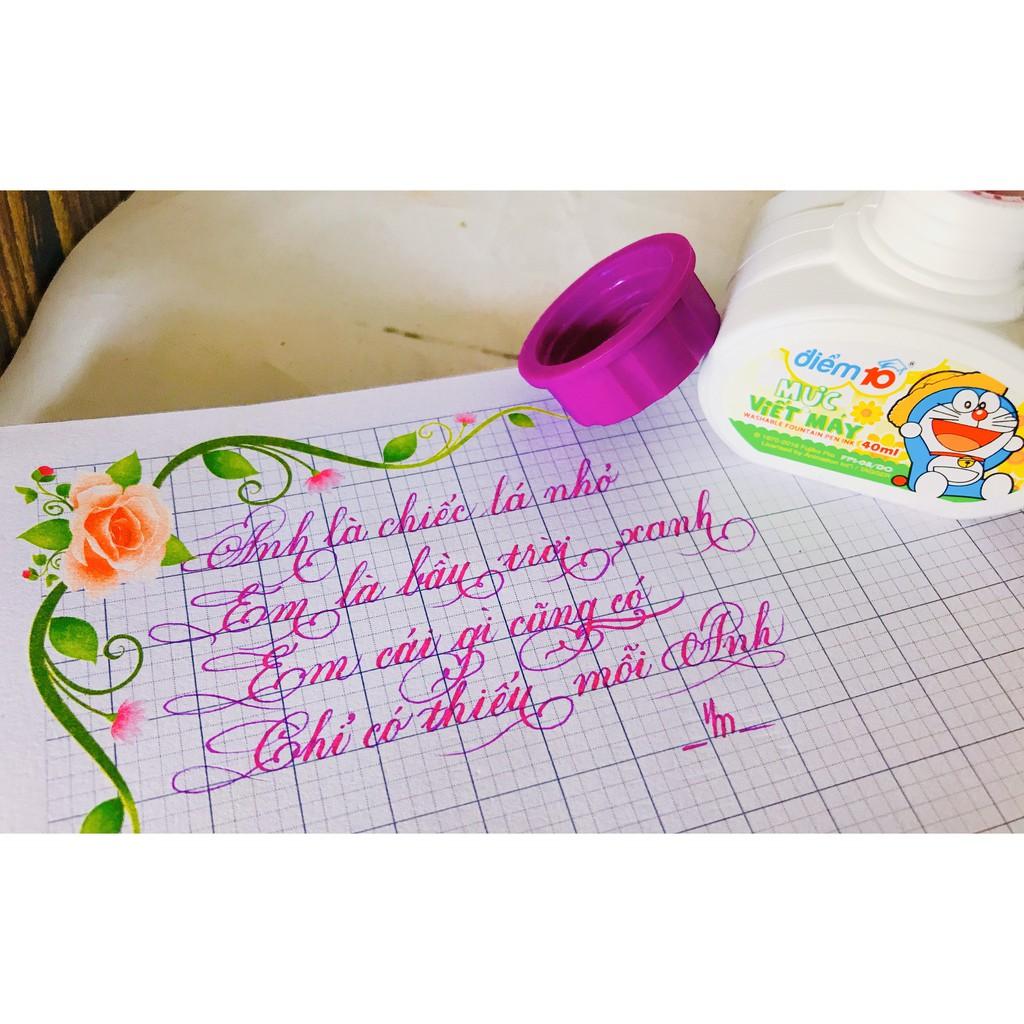 Anh là chiếc lá nhỏ
Em là bầu trời xanh
Em cái gì cũng có
Chỉ có thiếu mỗi Anh
điểm 10
MỰC
VIẾT MÁY
WASHABLE FOUNTAIN PEN INK 40ml
FPI-08/DO